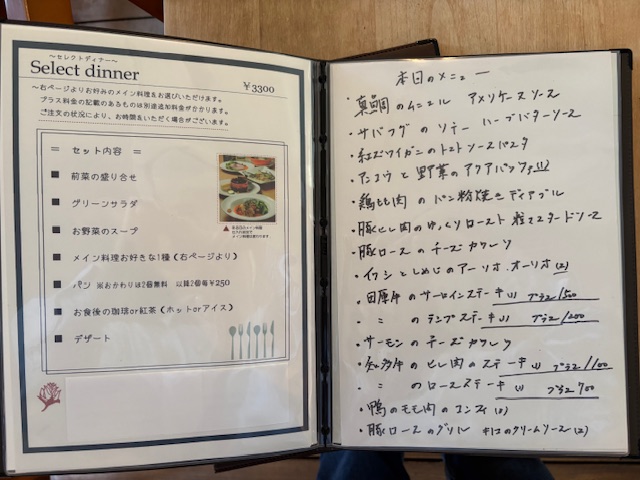 ～セレクトディナー～
Select dinner
¥3300
～右ページよりお好みのメイン料理をお選びいただけます。
プラス料金の記載のあるものは別途追加料金がかかります。
ご注文の状況により、お時間をいただく場合がございます。
＝ セット内容 ＝
■ 前菜の盛り合せ
■ グリーンサラダ
■ お野菜のスープ
■ メイン料理お好きな1種（右ページより）
■ パン ※おかわりは2個無料 以降2個毎¥250
■ お食後の珈琲or紅茶（ホットorアイス）
■ デザート
本日のメニュー
・真鯛のムニエル アメリケースソース
・サバフグのソテー ハーブバターソース
・紅ズワイガニのトマトソースパスタ
・アンコウと野菜のアクアパッツァ(1)
・鶏もも肉のパン粉焼きディアブル
・豚ヒレ肉のゆっくりロースト 粒マスタードソース
・豚ロースのチーズカツレツ
・イワシとしめじのアーリオ.オーリオ(2)
・田原牛のサーロインステーキ(1) プラス1500
・〃のランプステーキ(1) プラス1200
・サーモンのチーズカツレツ
・知多牛のヒレ肉のステーキ(1) プラス1100
・〃のロースステーキ(1) プラス700
・鴨のモモ肉のコンフィ(2)
・豚ロースのグリル キノコのクリームソース(2)